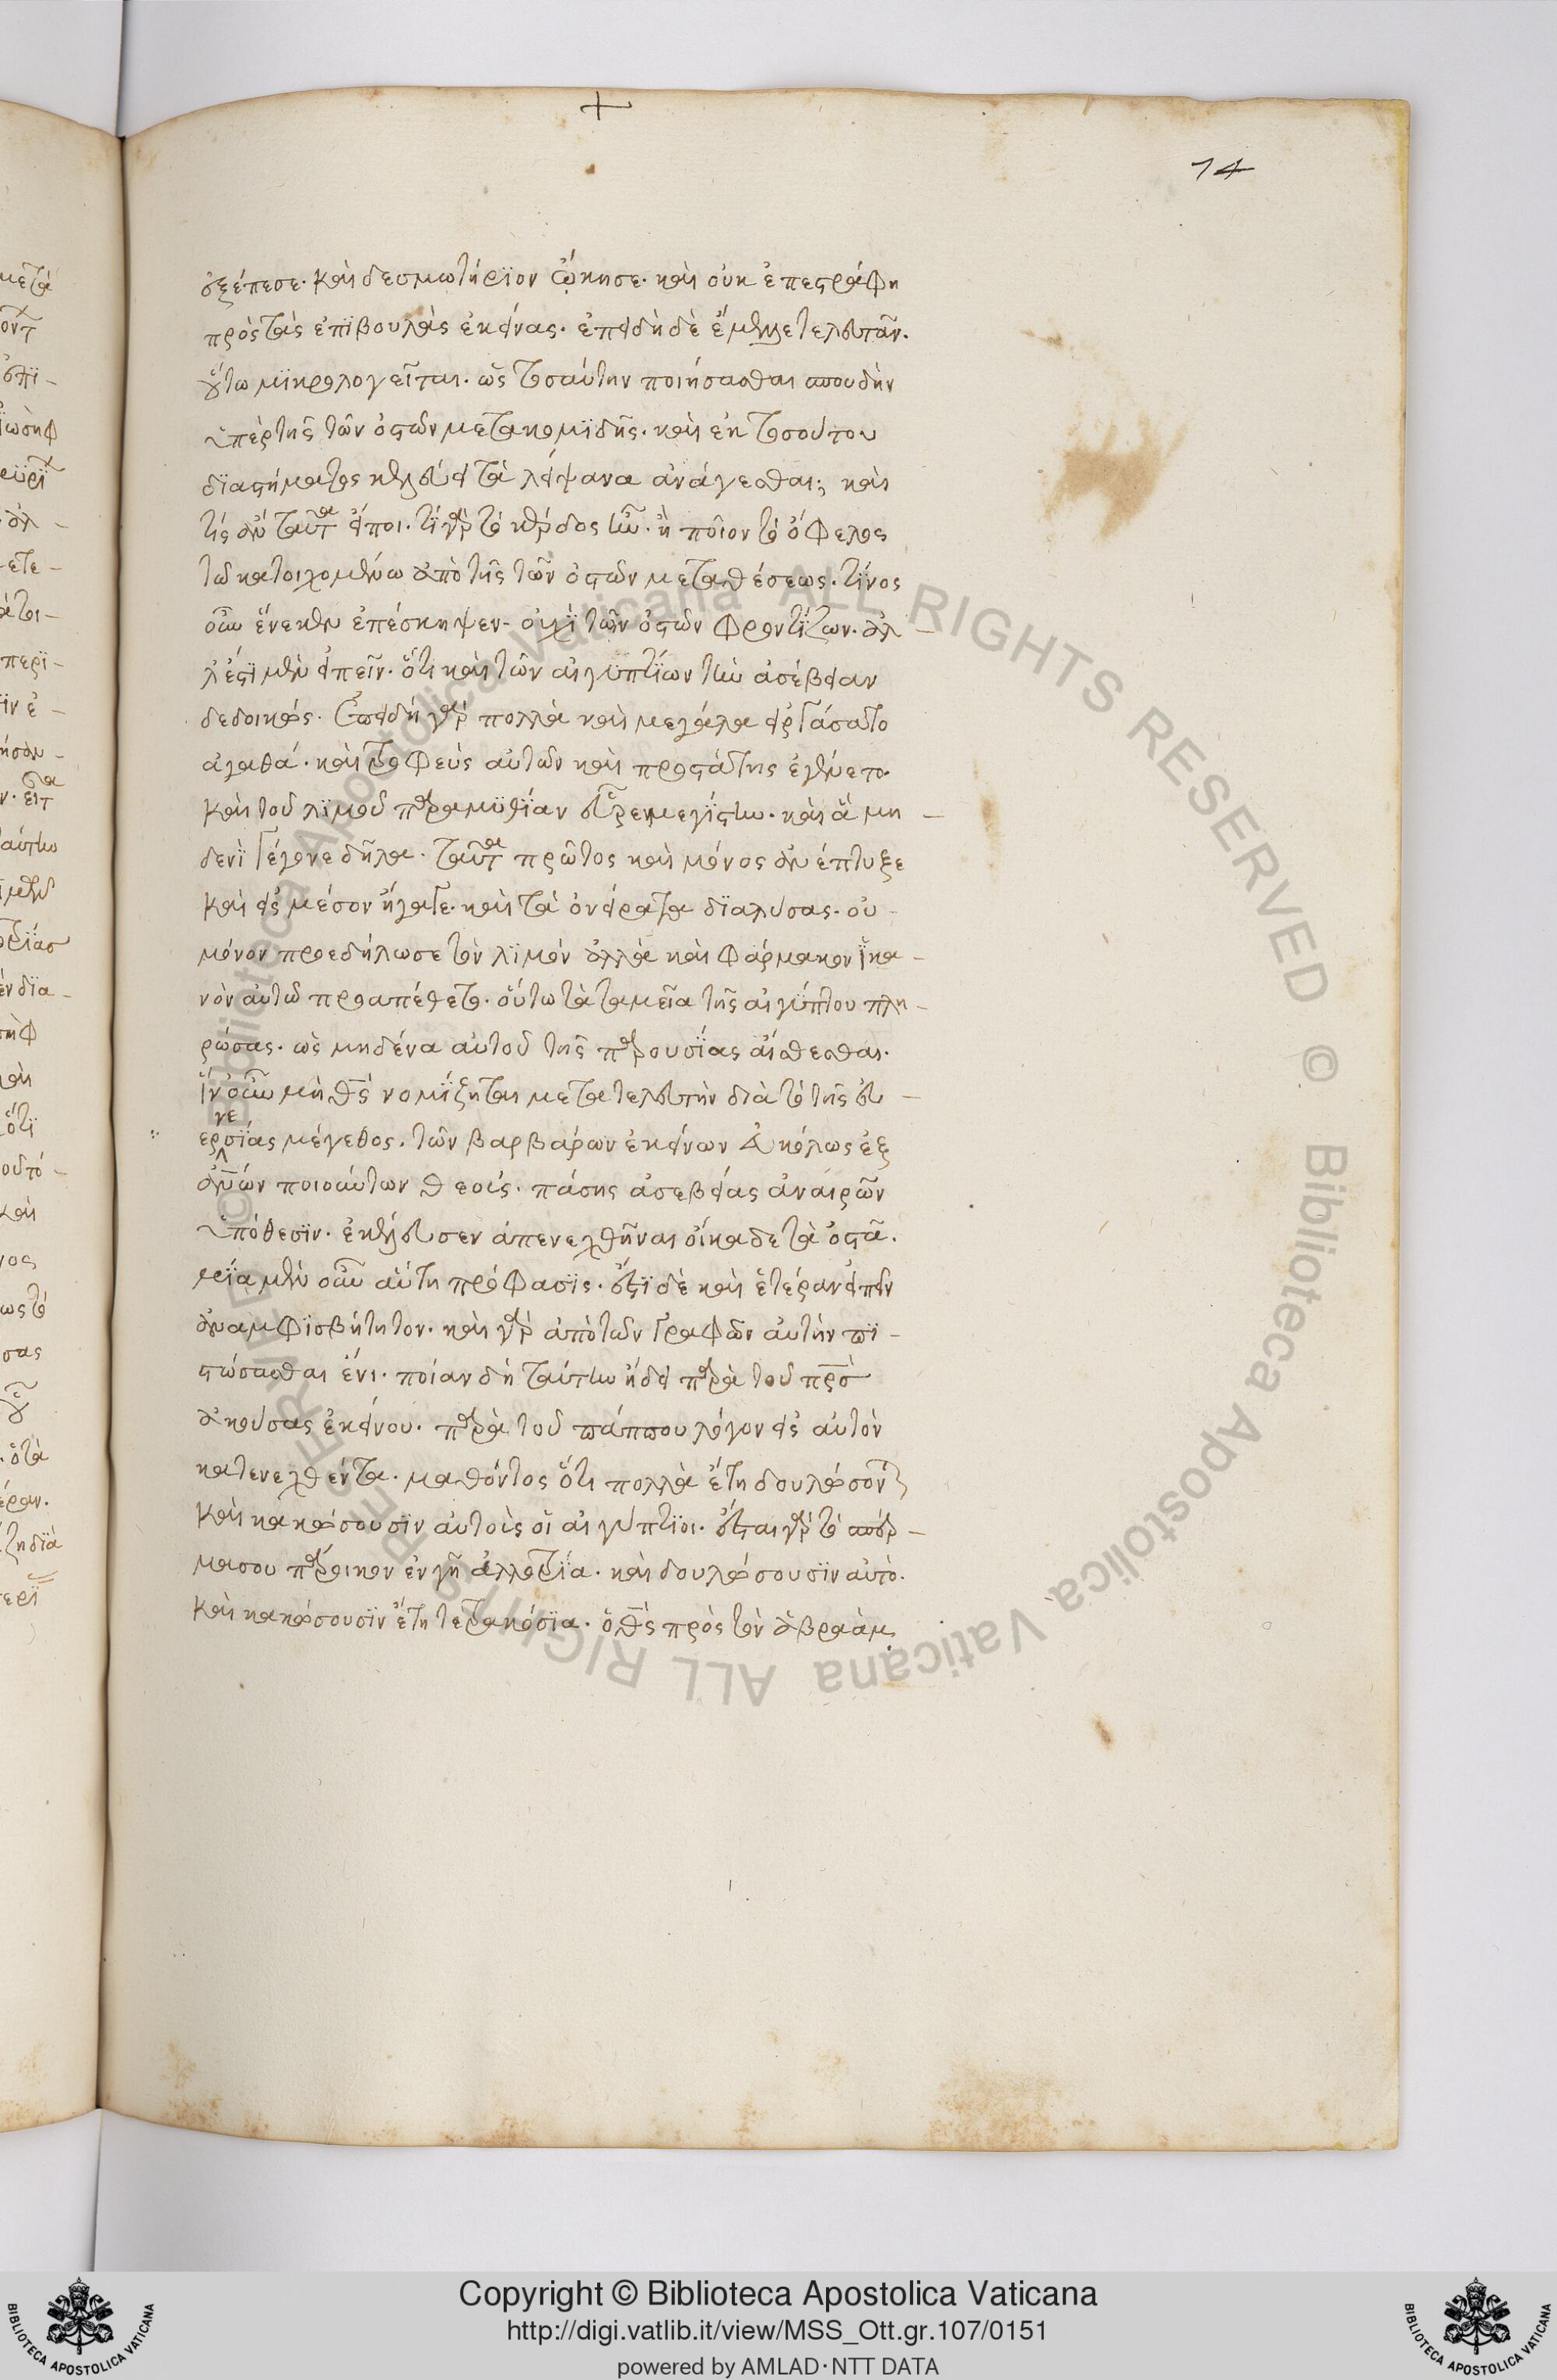 +
74
ἐξέπεσε. καὶ δεσμωτήριον ᾤκησε. καὶ οὐκ ἐπεςράφη
πρὸς τὰς ἐπϊβουλὰς ἐκείνας. ἐπειδὴ δὲ ἔμελλε τελευτᾶν.
οὕτω μϊκρολογεῖται. ὡς τοσαύτην ποιήσασθαι σπουδὴν
ὑπὲρ τῆς τῶν ὀςῶν μετακομϊδῆς. καὶ ἐκ τοσούτου
δϊαςήματος κελεύει τὰ λείψανα ἀνάγεσθαι; καὶ
τίς ἂν ταῦτα εἴποι. τί γὰρ τὸ κέρδος ἦν. ἢ ποῖον τὸ ὄφελος
τῶ κατοιχομένω ἀπὸ τῆς τῶν ὀςῶν μεταθέσεως. τίνος
οὖν ἕνεκεν ἐπέσκηψεν. οὐχῒ τῶν ὀςῶν φροντΐζων. ἀλ-
λ' ἔςϊ μὲν εἰπεῖν. ὅτι καὶ τῶν αἰγϋπτΐων τὴν ἀσέβειαν
δεδοικώς. ἐπειδὴ γὰρ πολλὰ καὶ μεγάλα εἰργάσατο
ἀγαθά. καὶ τροφεὺς αὐτῶν καὶ προςάτης ἐγένετο.
καὶ τοῦ λϊμοῦ παραμϋθΐαν εὗρε μεγΐςην. καὶ ἃ μη-
δενῒ γέγονε δῆλα. ταῦτα πρῶτος καὶ μόνος ἀνέπτυξε
καὶ εἰς μέσον ἤγαγε. καὶ τὰ ὀνείρατα δϊαλύσας. οὐ
μόνον προεδήλωσε τὸν λϊμόν ἀλλὰ καὶ φάρμακον ϊκα-
νὸν αὐτῶ προαπέθετο. οὕτω τὰ ταμεῖα τῆς αἰγύπτου πλη-
ρώσας. ὡς μηδένα αὐτοῦ τῆς παρουσΐας αἴσθεσθαι.
ἵν' οὖν μὴ θς νομΐζηται μετὰ τελευτὴν διὰ τὸ τῆς εὐ-
εργεσΐας μέγεθος. τῶν βαρβάρων ἐκείνων εὐκόλως ἐξ
ἀνων ποιούντων θεοὺς. πάσης ἀσεβείας ἀναιρῶν
ὑπόθεσϊν. ἐκέλευσεν ἀπενεχθῆναι οἴκαδε τὰ ὀςᾶ.
μΐα μὲν οὖν αὕτη πρόφασϊς. ἔςϊ δὲ καὶ ἑτέραν εἰπεῖν
ἀναμφϊσβήτητον. καὶ γὰρ ἀπὸ τῶν γραφῶν αὐτὴν πϊ-
ςώσασθαι ἔνι. ποίαν δὴ ταύτην ἤδει παρὰ τοῦ πρς
ἀκούσας ἐκείνου. παρὰ τοῦ πάππου λόγον εἰς αὐτὸν
κατενεχθέντα. μαθόντος ὅτι πολλὰ ἔτη δουλώσουσι
καὶ κακώσουσϊν αὐτοὺς οἱ αἰγύπτϊοι. ἔςαι γὰρ τὸ σπέρ-
μα σου πάροικον ἐν γῆ ἀλλοτρΐα. καὶ δουλώσουσϊν αὐτό.
καὶ κακώσουσϊν ἔτη τετρακόσϊα. ὁ θς πρὸς τὸν ἀβραὰμ
Copyright © Biblioteca Apostolica Vaticana
http://digi.vatlib.it/view/MSS_Ott.gr.107/0151
powered by AMLAD·NTT DATA
BIBLIOTECA APOSTOLICA VATICANA
BIBLIOTECA APOSTOLICA VATICANA
© Biblioteca Apostolica Vaticana ALL RIGHTS RESERVED © Biblioteca Apostolica Vaticana ALL RIGHTS RESERVED